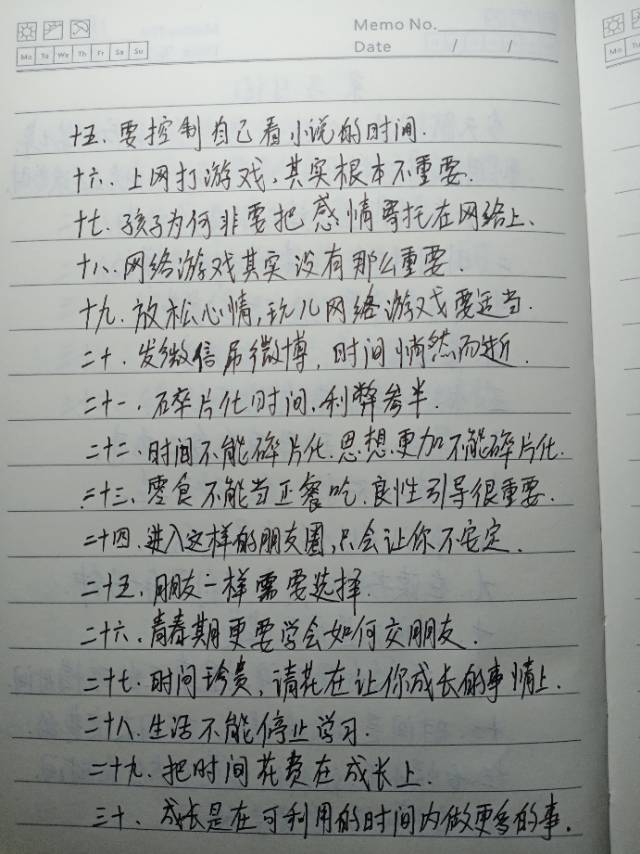 Memo No.
Mo Tu We Th Fr Sa Su
Date / /
十五、要控制自己看小说的时间.
十六、上网打游戏,其实根本不重要.
十七、孩子为何非要把感情寄托在网络上、
十八、网络游戏其实没有那么重要.
十九.放松心情,玩儿网络游戏要适当.
二十、发微信吊微博,时间悄然而逝.
二十一、碎片化时间,利弊参半.
二十二、时间不能碎片化.思想更加不能碎片化.
二十三、零食不能当正餐吃.良性引导很重要.
二十四、进入这样的朋友圈,只会让你不安定.
二十五、朋友一样需要选择.
二十六、青春期更要学会如何交朋友.
二十七、时间珍贵,请花在让你成长的事情上.
二十八、生活不能停止学习.
二十九、把时间花费在成长上.
三十、成长是在可利用的时间内做更多的事.